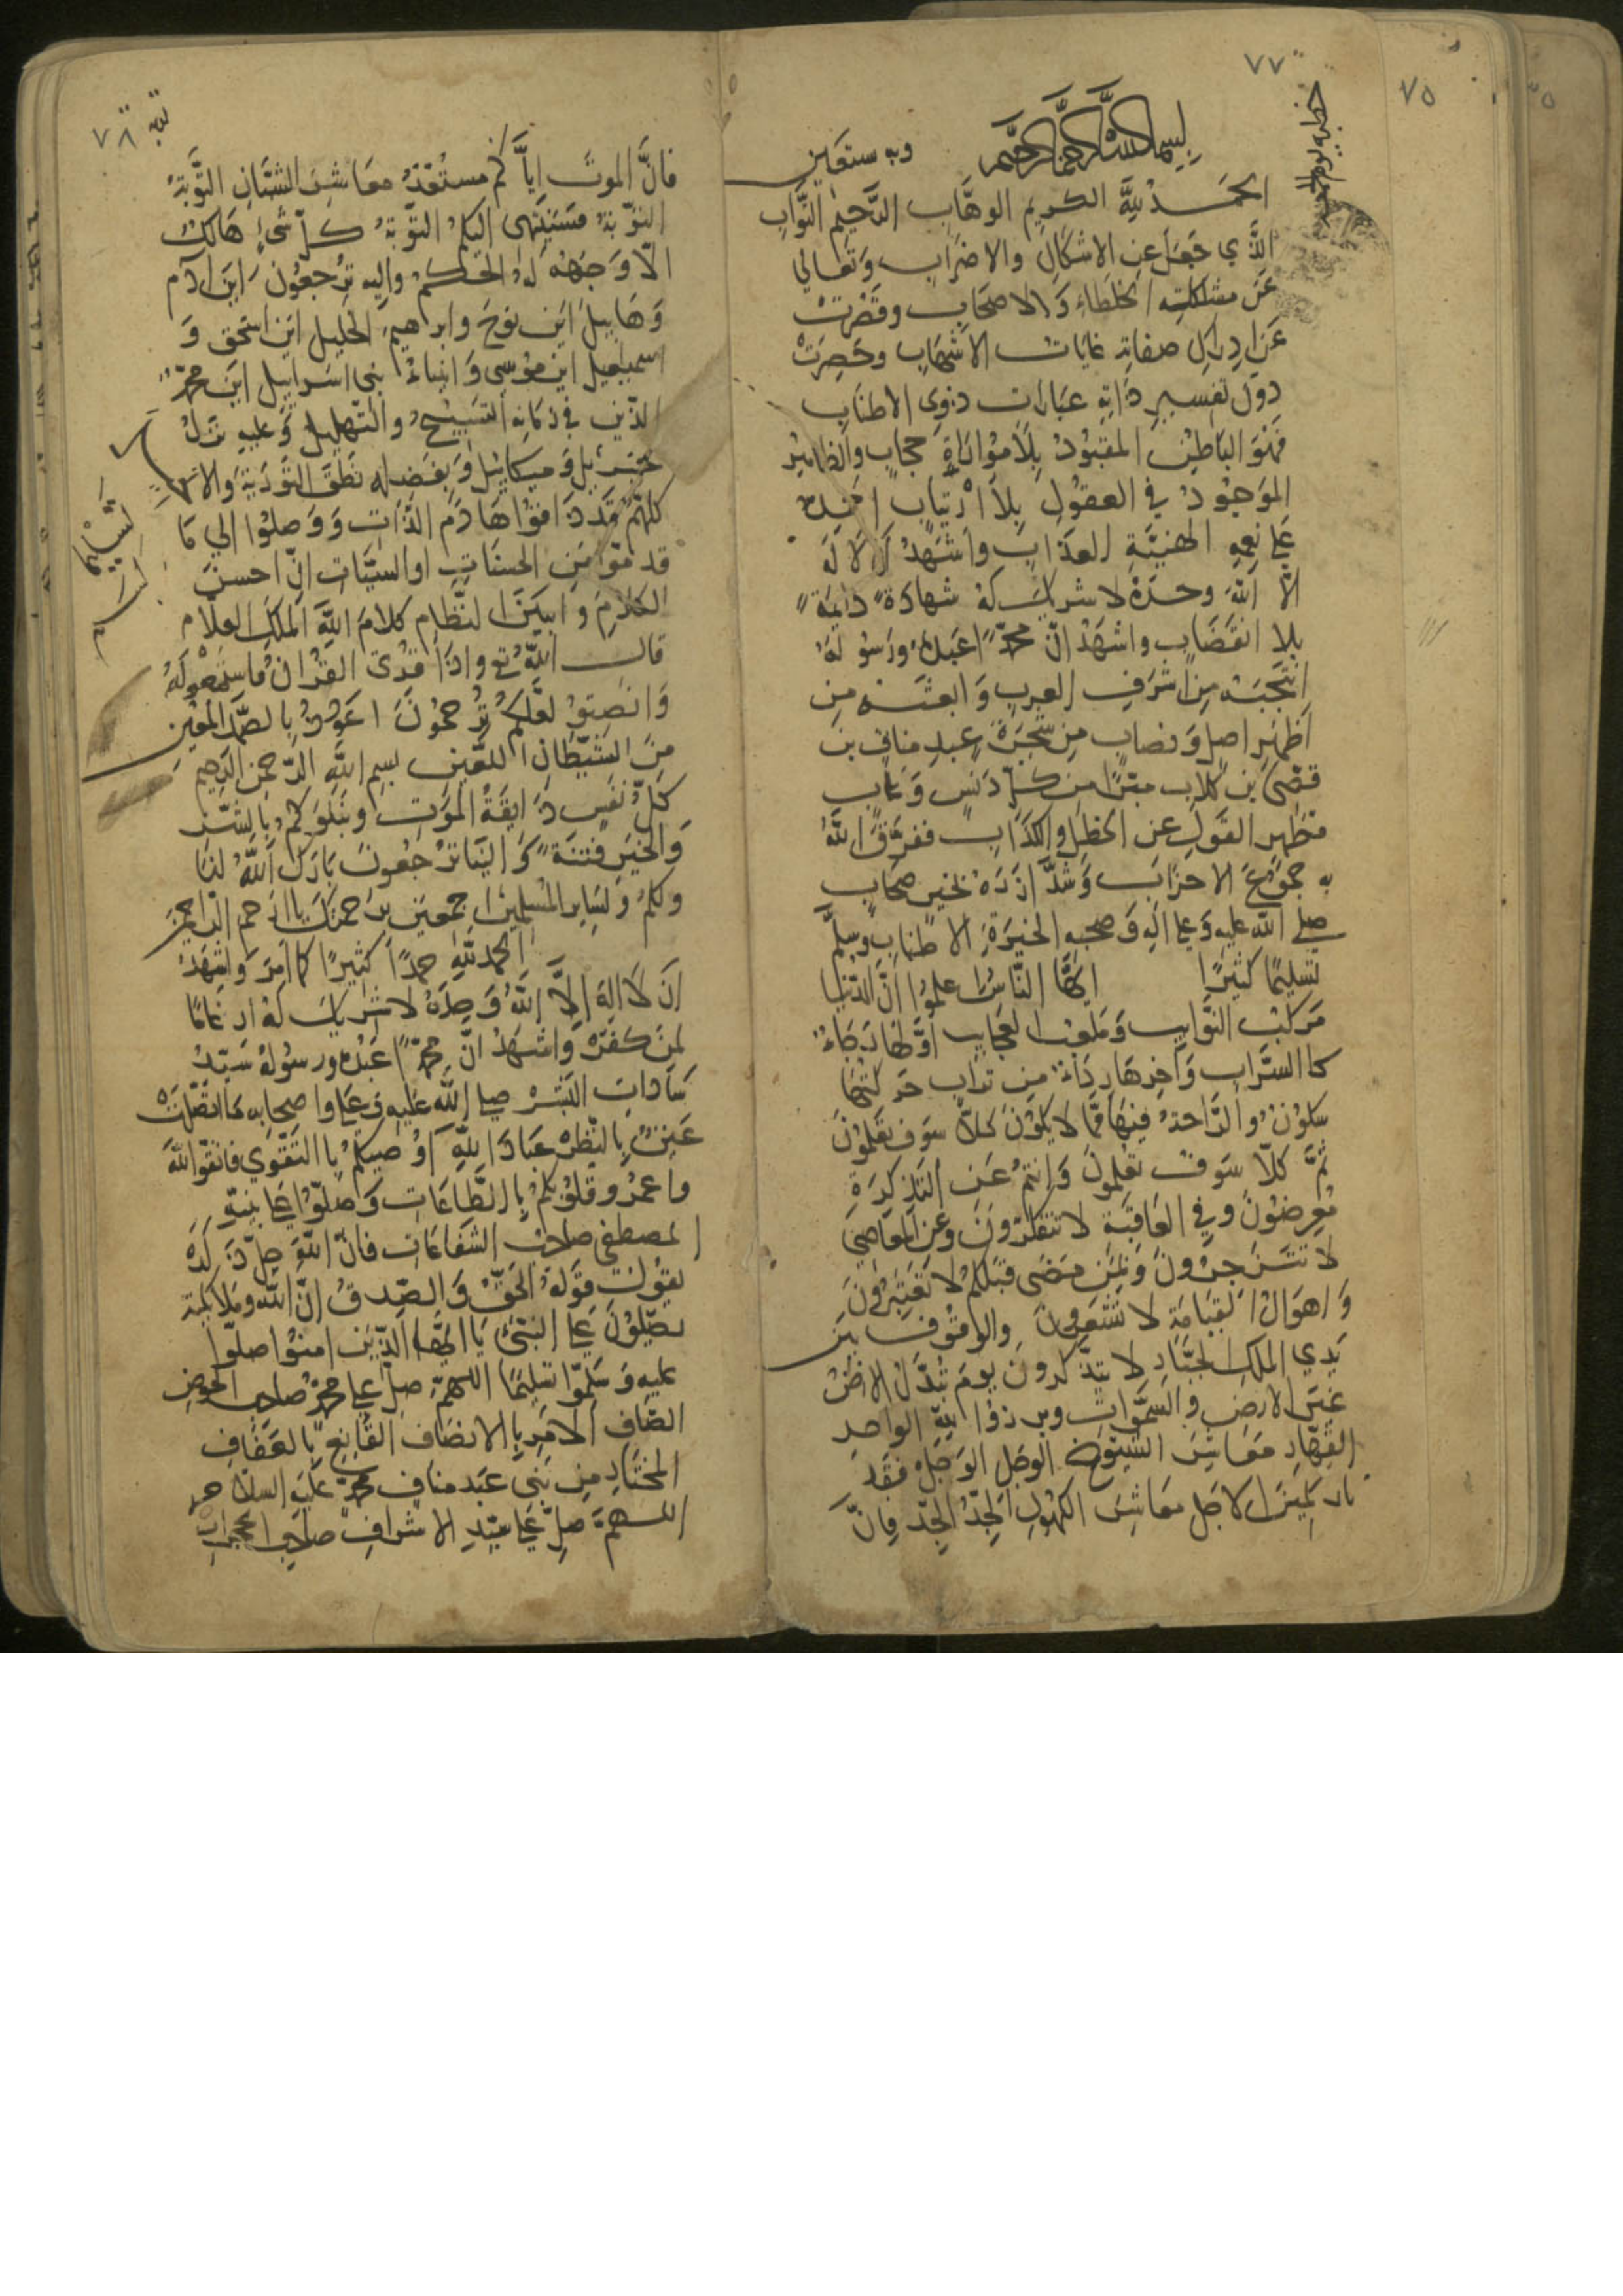 ٧٧
٧٥
بسم الله الرحمن الرحيم وبه ستعين
الحمد لله الكريم الوهاب الرحيم التواب
الذي جعل عن الاشكال والاضراب وتعالي
عن مشاكلته الخلطاء والاصحاب وقصرت
عن ادراك صفاته غايات الاشهاب وحصرت
دون تفسير ذاته عبارات ذوي الاطناب
فهو الباطن المعبود بلا مواراة حجاب والظاهر
الموجود في العقول بلا ارتياب احمده
علي نعمه الهنية العذاب واشهد ان لا اله
الا الله وحده لا شريك له شهادة دايمة
بلا انقضاب واشهد ان محمدا عبده ورسوله
انتجبه من اشرف العرب وابعثه من
اطهر اصل ونصاب من شجرة عبد مناف بن
قصي بن كلاب مبرا من كل دنس وعاب
مطهر القول عن الخطل والكذاب ففرق الله
به جموع الاحزاب وشد ازره بخير صحاب
صلي الله عليه وعلي اله وصحبه الخيرة الاطناب وسلم
تسليما كثيرا ايها الناس اعلموا ان الدنيا
مركب النوايب وملعب العجايب اولها رجاء
كا السراب واخرها رداء من تراب حر كتها
سكون والراحة فيها مما لا يكون كلا سوف تعلمون
ثم كلا سوف تعلمون وانتم عن التذكرة
معرضون وفي العاقبة لا تتفكرون وعن المعاصي
لا تنزجرون وبمن مضي قبلكم لا تعتبرون
واهوال القيامة لا تشعرون والوقوف بين
يدي الملك الجبار لا يتذكرون يوم تبدل الارض
غير الارض والسموات وبرزوا لله الواحد
القهار معاشر الشيوخ الوجل الوجل فقد
الاجل معاشر الكهول الجد الجد فان
٧٨
فان الموت اياكم مستعقد معاشر الشبان التوبة
التوبة فسينتهي اليكم التوبة كل شئ هالك
الا وجهه له الحكم واليه ترجعون اين ادم
وهابيل اين نوح وابرهيم الخليل اين اسحق و
اسمعيل اين موسي وانبياء بني اسراييل اين محمد
الذين في زمانه التسبيح والتهليل وعليه نزل
جبرئيل وميكائيل وبفضله نطق التورية والانجيل
كلهم قد ذاقوا هادم اللذات ووصلوا الي ما
قدموا من الحسنات او السيئات ان احسن
الكلام وابين النظام كلام الله الملك العلام
قال الله تع واذا قرئ القران فاستمعوا له
وانصتوا لعلكم ترحمون اعوذ بالصمد المعين
من الشيطان اللعين بسم الله الرحمن الرحيم
كل نفس ذايقة الموت ونبلوكم بالشر
والخير فتنة والينا ترجعون بارك الله لنا
ولكم ولساير المسلمين اجمعين برحمتك يا ارحم الراحمين
الحمد لله حمدا كثيرا كما امر واشهد
ان لا اله الا الله وحده لا شريك له ارغاما
لمن كفر واشهد ان محمدا عبده ورسوله سيد
سادات البشر صلي الله عليه وعلي واصحابه ما اتصلت
عين بالنظر عباد الله اوصيكم با التقوي فاتقوا الله
واعمروقلوبكم با الطاعات وصلوا علي نبيه
المصطفي صاحب الشفاعات فان الله جل ذكره
يقول قوله الحق والصدق ان الله وملائكته
يصلون علي النبي يا ايها الذين امنوا صلوا
عليه وسلموا تسليما اللهم صل علي محمد صاحب الحوض
الصاف الامر با الانصاف القانع بالعفاف
المختار من بني عبد مناف محمد عليه السلام
اللهم صل علي سيد الاشراف صاحب المحراب